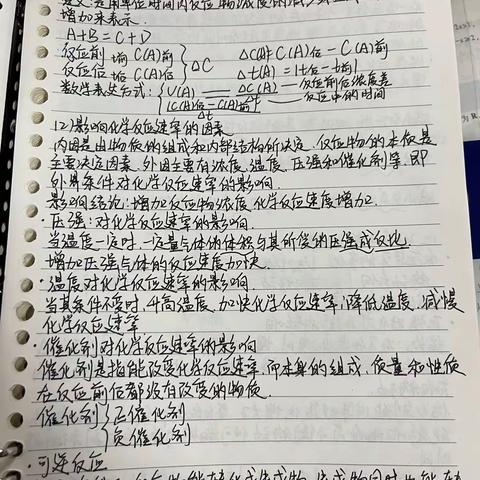 定义:是用单位时间内反应物浓度的减少或生成
增加来表示.
A+B=C+D
反应前 t前 C(A)前
反应后 t后 C(A)后 } ΔC ΔC(A)=C(A)后-C(A)前
Δt(A)=|t后-t前|
数学表达式: V(A) = ΔC(A) 反应前后浓度差
|C(A)后-C(A)前| Δt 反应中的时间
(2)影响化学反应速率的因素
内因是由物质的组成和内部结构所决定.反应物的本质是
主要决定因素.外因主要有浓度、温度、压强和催化剂等.即
外界条件对化学反应速率的影响.
影响结论:增加反应物浓度,化学反应速度增加.
·压强:对化学反应速率的影响.
当温度一定时.一定量气体的体积与其所受的压强成反比.
增加压强气体的反应速度加快.
·温度对化学反应速率的影响.
当其条件不变时,升高温度.加快化学反应速率;降低温度.减慢
化学反应速率
·催化剂对化学反应速率的影响
催化剂是指能改变化学反应速率.而本身的组成、质量和性质
在反应前后都没有改变的物质.
催化剂{正催化剂
负催化剂
·可逆反应